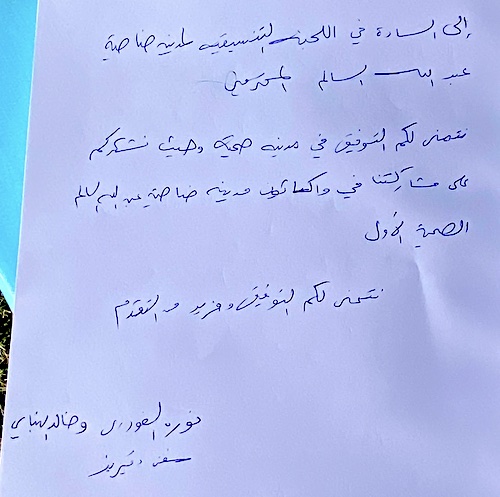 إلى السادة في اللجنة التنسيقية لمدينة ضاحية
عبد الله السالم المحترمين
نتمنى لكم التوفيق في مدينة صحية وحيث نشكركم
على مشاركتنا في مدينة ضاحية عبدالله السالم
الصحية الأول
نتمنى لكم التوفيق ومزيد من التقدم
نوره الفودري وخالد الهنابي